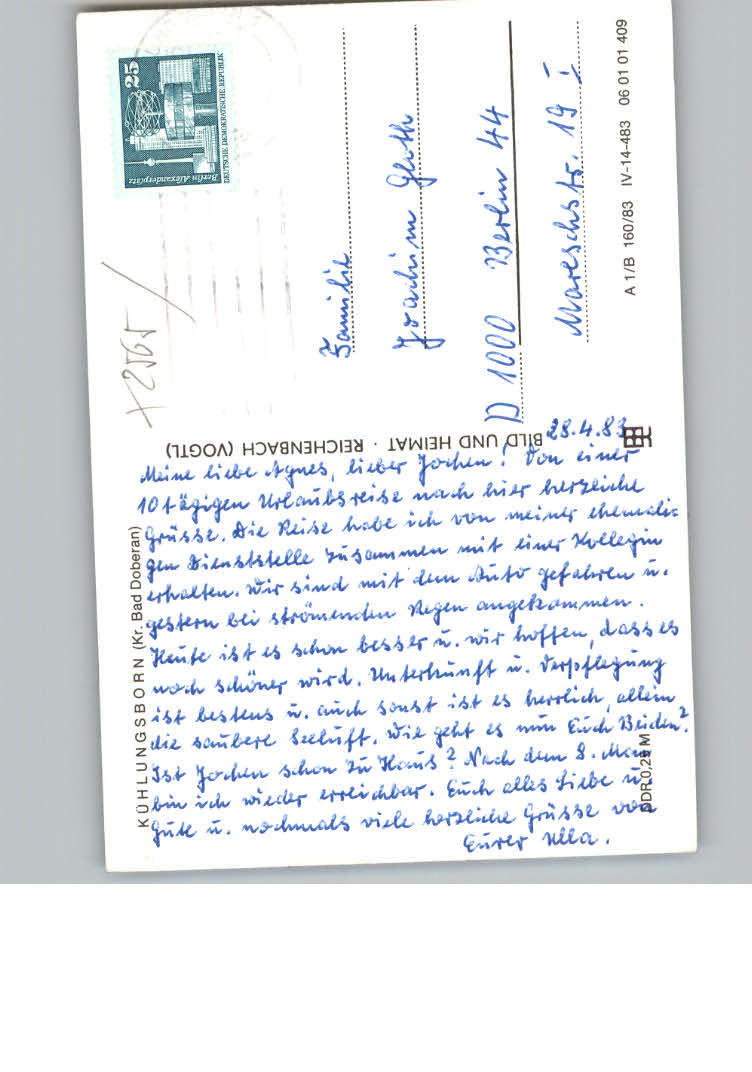 28.4.83
Meine liebe Agnes, lieber Jochen! Von einer
10tägigen Urlaubsreise nach hier herzliche
Grüsse. Die Reise habe ich von meiner ehemali-
gen Dienststelle zusammen mit einer Kollegin
erhalten. Wir sind mit dem Auto gefahren u.
gestern bei strömenden Regen angekommen.
Heute ist es schon besser u. wir hoffen, dass es
noch schöner wird. Unterkunft u. Verpflegung
ist bestens u. auch sonst ist es herrlich, allein
die saubere Seeluft. Wie geht es nun Euch Beiden?
Ist Jochen schon zu Haus? Nach dem 8. Mai
bin ich wieder erreichbar. Euch alles Liebe u.
Gute u. nochmals viele herzliche Grüsse von
Eurer Ulla.
KÜHLUNGSBORN (Kr. Bad Doberan)
BILD UND HEIMAT · REICHENBACH (VOGTL)
DDR 0,25 M
25
DEUTSCHE DEMOKRATISCHE REPUBLIK
Berlin-Alexanderplatz
+2565
Familie
Joachim Gloth
D 1000 Berlin 44
Mareschstr. 19 I
A 1/B 160/83 IV-14-483 06 01 01 409